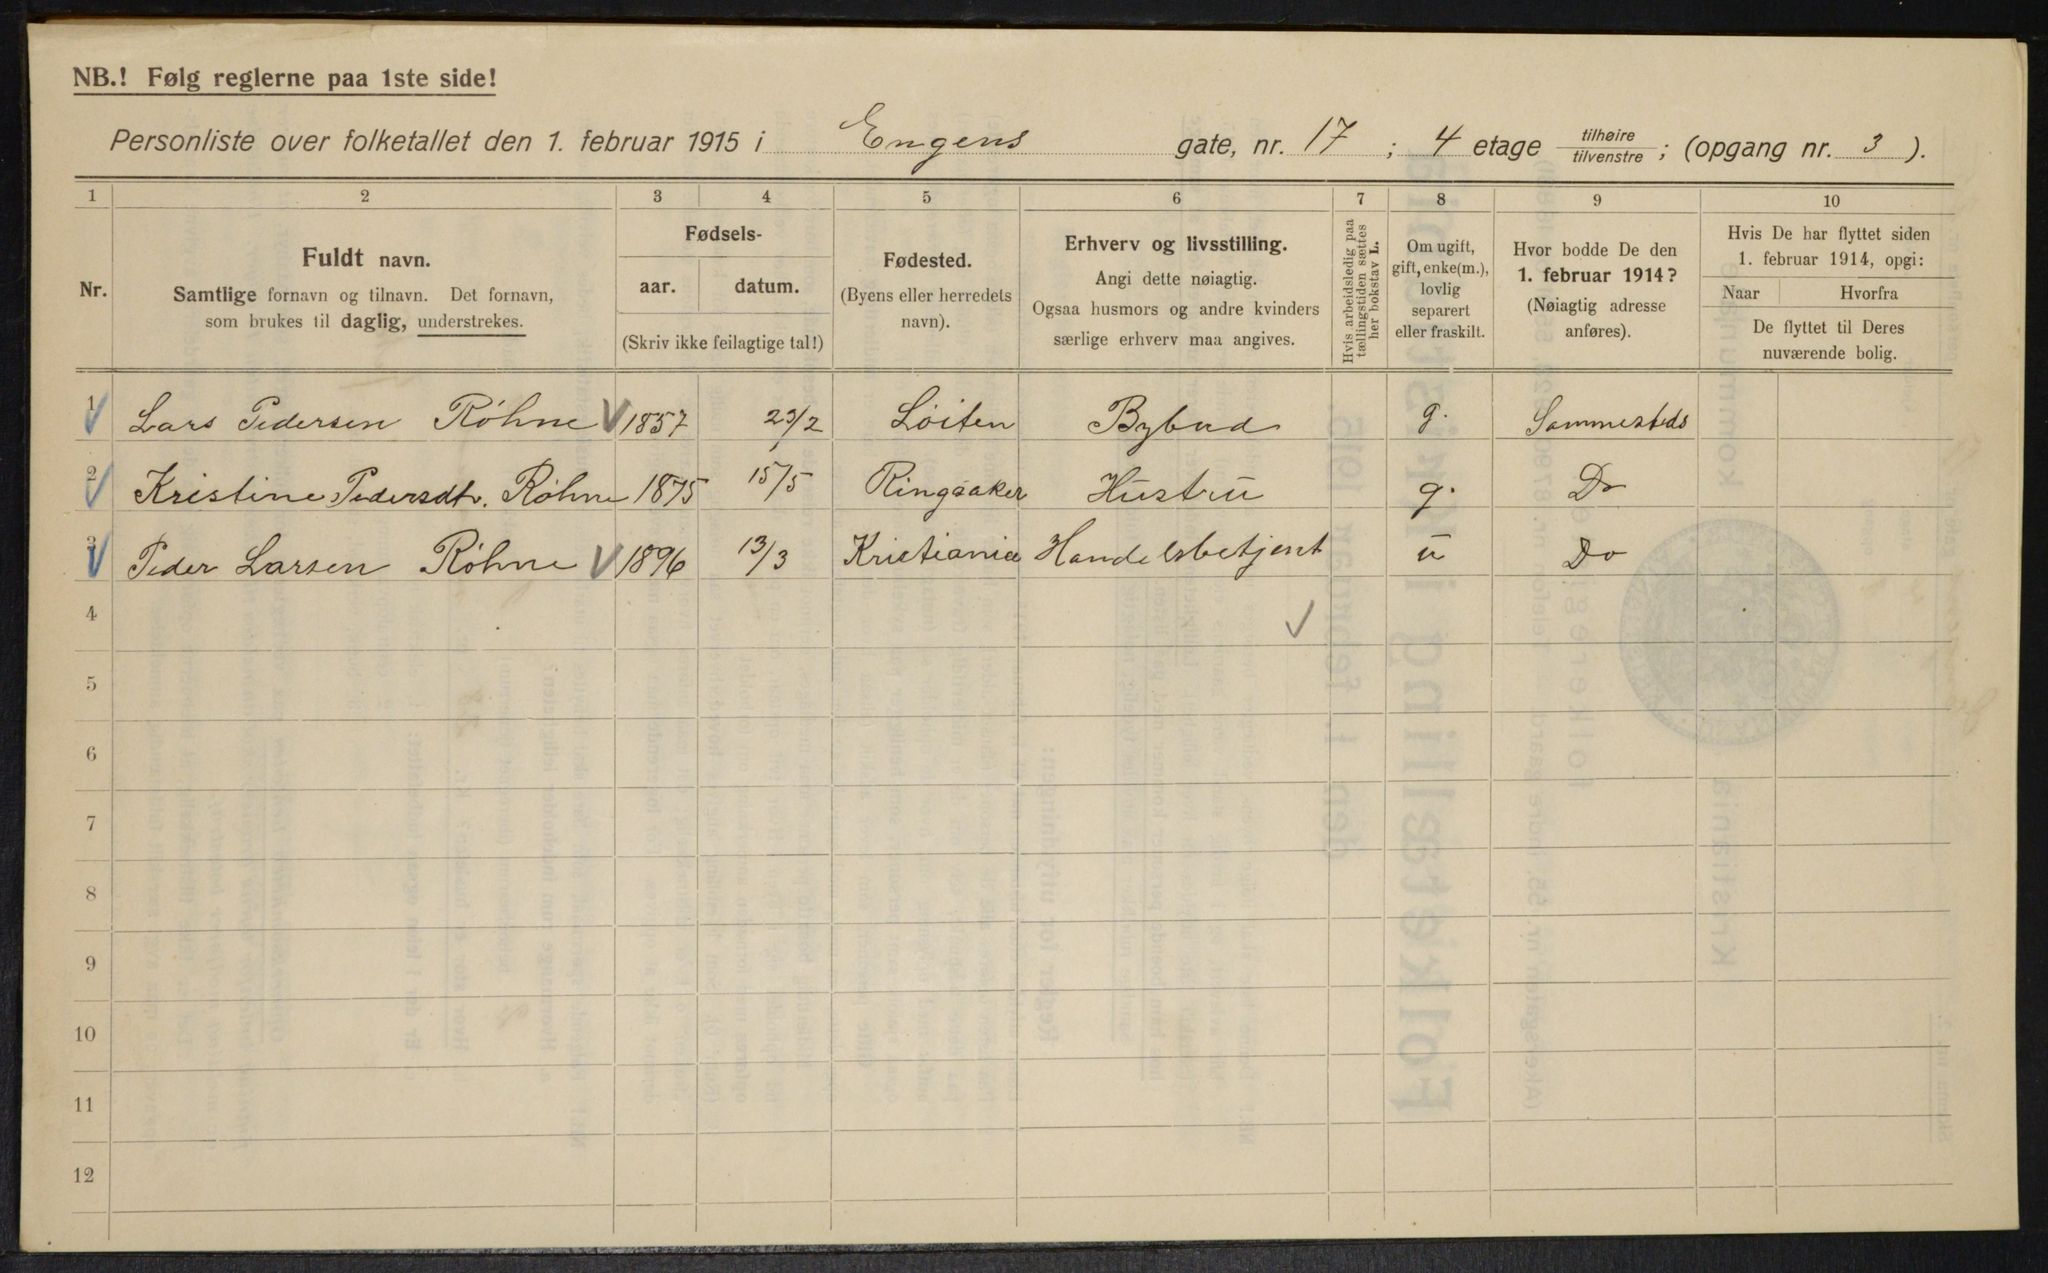 NB.! Følg reglerne paa 1ste side!
Personliste over folketallet den 1. februar 1915 i Engens gate, nr. 17 ; 4 etage tilhøire tilvenstre ; (opgang nr. 3 ).
1 2 3 4 5 6 7 8 9 10
Nr.
Fuldt navn.
Samtlige fornavn og tilnavn. Det fornavn,
som brukes til daglig, understrekes.
Fødsels-
aar. datum.
(Skriv ikke feilagtige tal!)
Fødested.
(Byens eller herredets
navn).
Erhverv og livsstilling.
Angi dette nøiagtig.
Ogsaa husmors og andre kvinders
særlige erhverv maa angives.
Hvis arbeidsledig paa
tællingstiden sættes
her bokstav L.
Om ugift,
gift, enke(m.),
lovlig
separert
eller fraskilt.
Hvor bodde De den
1. februar 1914?
(Nøiagtig adresse
anføres).
Hvis De har flyttet siden
1. februar 1914, opgi:
Naar Hvorfra
De flyttet til Deres
nuværende bolig.
1 Lars Pedersen Röhne 1857 23/2 Löiten Bybud g. Sammesteds
2 Kristine Pedersdtr. Röhne 1875 15/5 Ringsaker Hustru g. Do
3 Peder Larsen Röhne 1896 13/3 Kristiania Handelsbetjent u Do
4
5
6
7
8
9
10
11
12